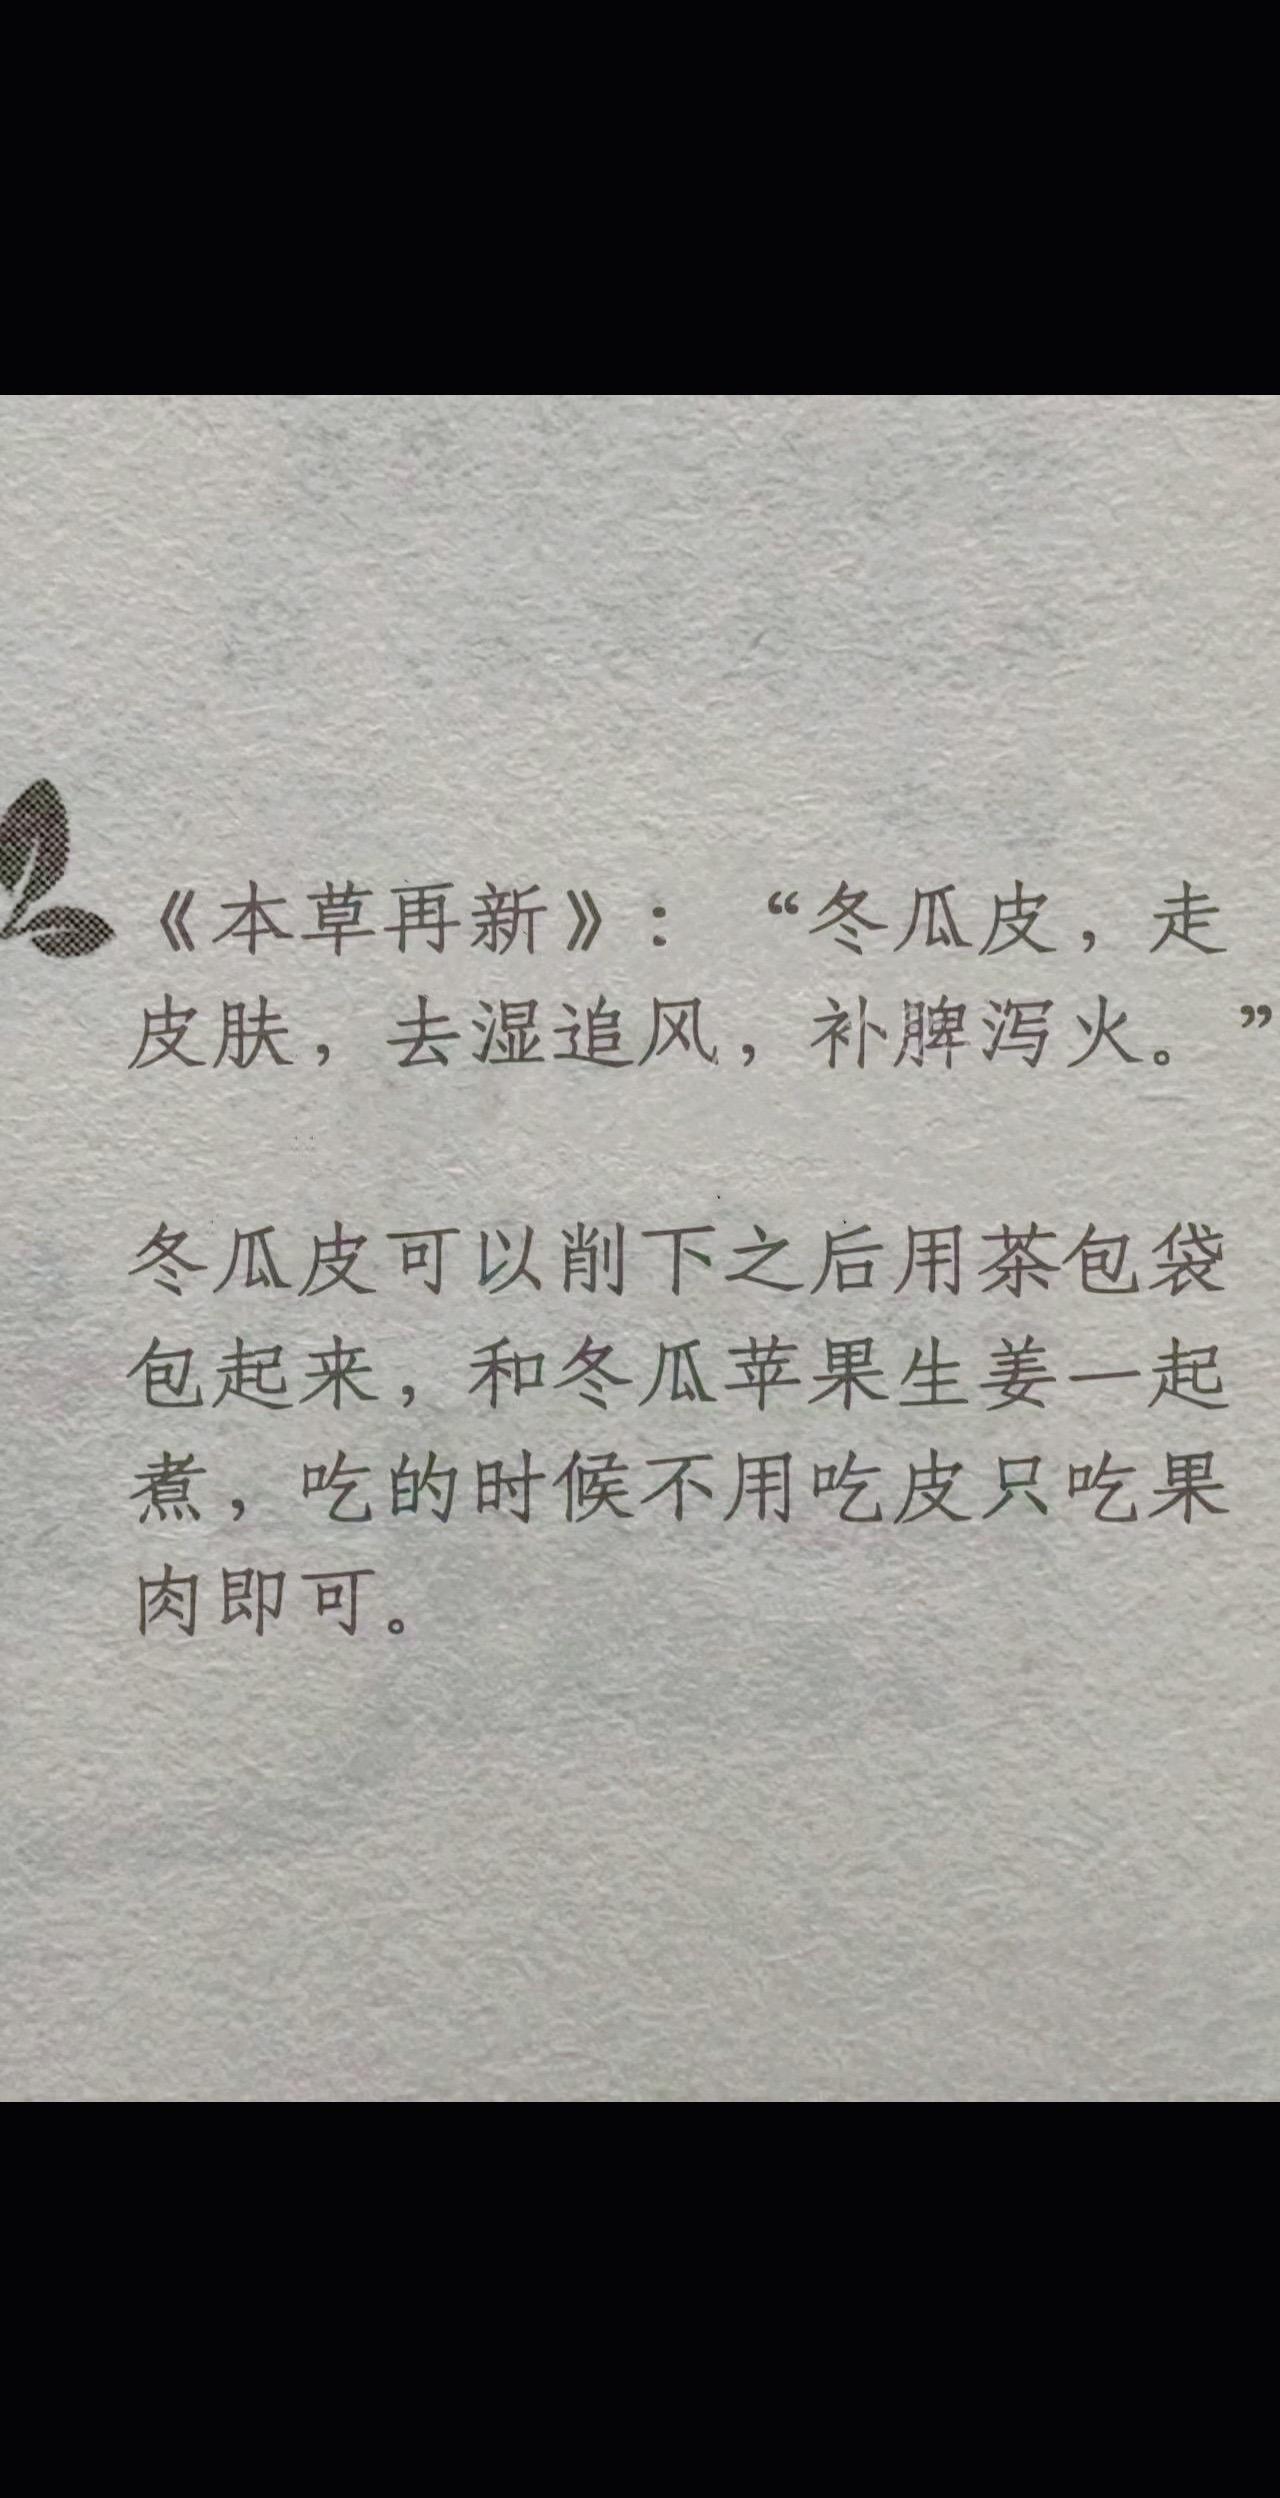 《本草再新》：“冬瓜皮，走
皮肤，去湿追风，补脾泻火。”
冬瓜皮可以削下之后用茶包袋
包起来，和冬瓜苹果生姜一起
煮，吃的时候不用吃皮只吃果
肉即可。